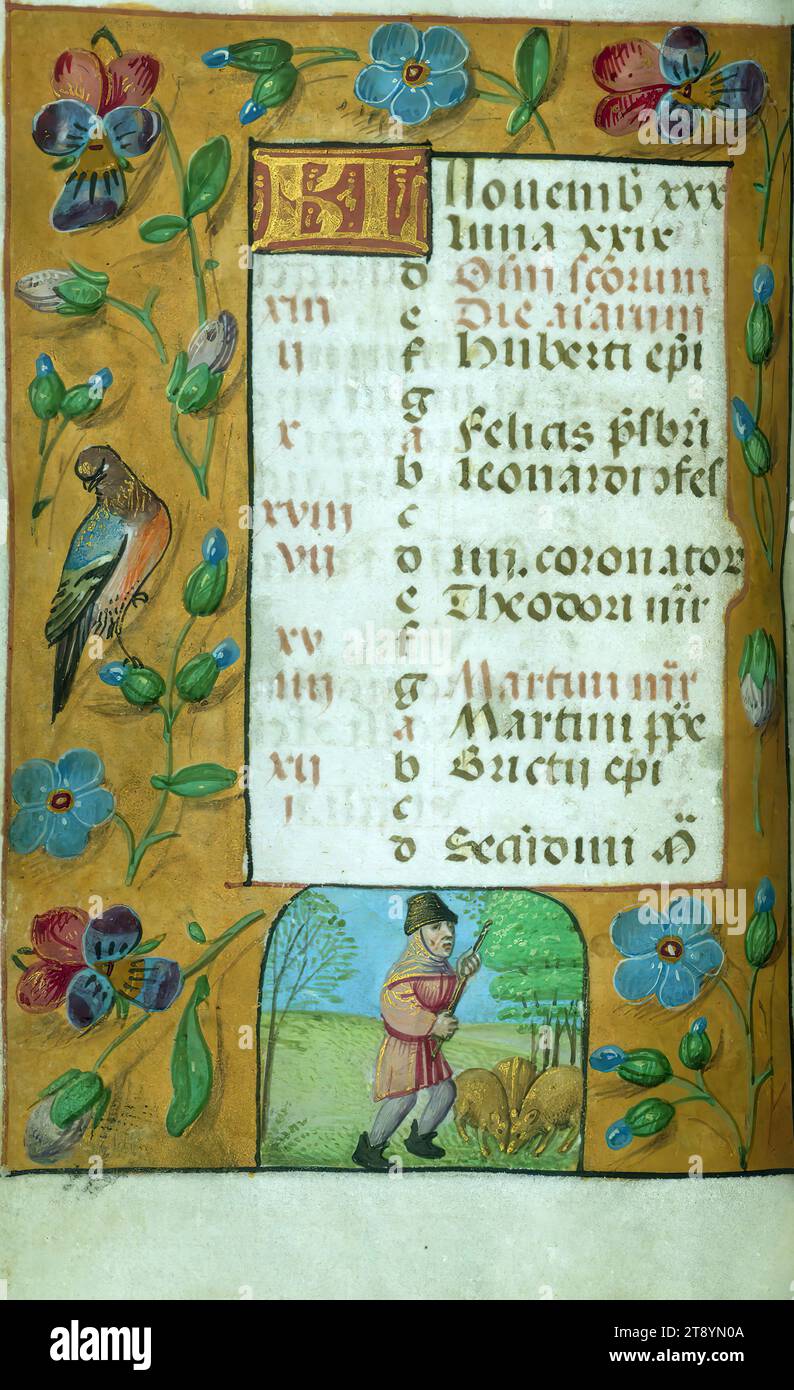 KL Nouemb̃ xxx
luna xxix
d Om̃i sc̃orum
xiii e Die aĩarum
ii f Huberti ep̃i
g
x a Felicis p̃sbr̃i
b leonardi ↄfes
xviii c
vii d iiij. coronator
e Theodori m̃r
xv f
iiii g Martini m̃r
a Martini pp̃e
xii b Brictij ep̃i
i c
d Secũdini m̃
alamy
alamy
Image ID: 2T8YN0A
www.alamy.com